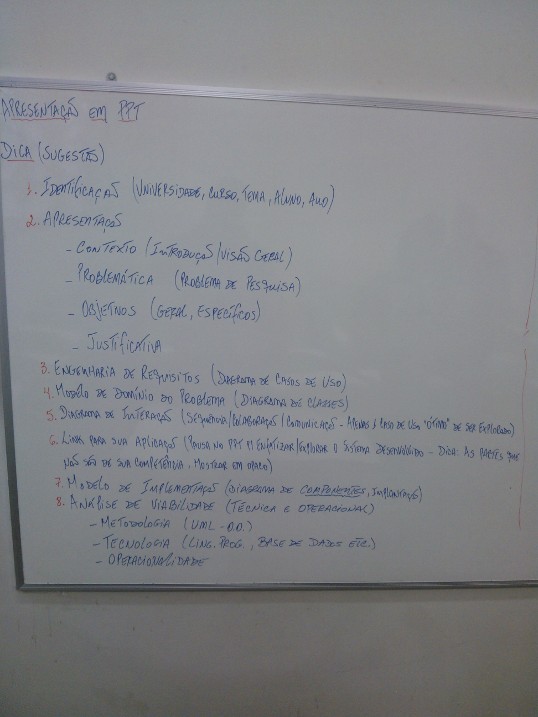 APRESENTAÇÃO EM PPT
DICA (SUGESTÃO)
1. IDENTIFICAÇÃO (UNIVERSIDADE, CURSO, TEMA, ALUNO, ANO)
2. APRESENTAÇÃO
- CONTEXTO (INTRODUÇÃO/VISÃO GERAL)
- PROBLEMÁTICA (PROBLEMA DE PESQUISA)
- OBJETIVOS (GERAL, ESPECÍFICOS)
- JUSTIFICATIVA
3. ENGENHARIA DE REQUISITOS (DIAGRAMA DE CASOS DE USO)
4. MODELO DE DOMÍNIO DO PROBLEMA (DIAGRAMA DE CLASSES)
5. DIAGRAMA DE INTERAÇÃO (SEQUÊNCIA/COLABORAÇÃO/COMUNICAÇÃO - APENAS 1 CASO DE USO "ÓTIMO" DE SER EXPLORADO)
6. LINK PARA SUA APLICAÇÃO (PAUSA NO PPT P/ ENFATIZAR/EXPLORAR O SISTEMA DESENVOLVIDO - DICA: AS PARTES QUE
NÃO SÃO DE SUA COMPETÊNCIA, MOSTRAR EM OPACO)
7. MODELO DE IMPLEMENTAÇÃO (DIAGRAMA DE COMPONENTES, IMPLANTAÇÃO)
8. ANÁLISE DE VIABILIDADE (TÉCNICA E OPERACIONAL)
- METODOLOGIA (UML - O.O.)
- TECNOLOGIA (LING. PROG., BASE DE DADOS ETC.)
- OPERACIONALIDADE